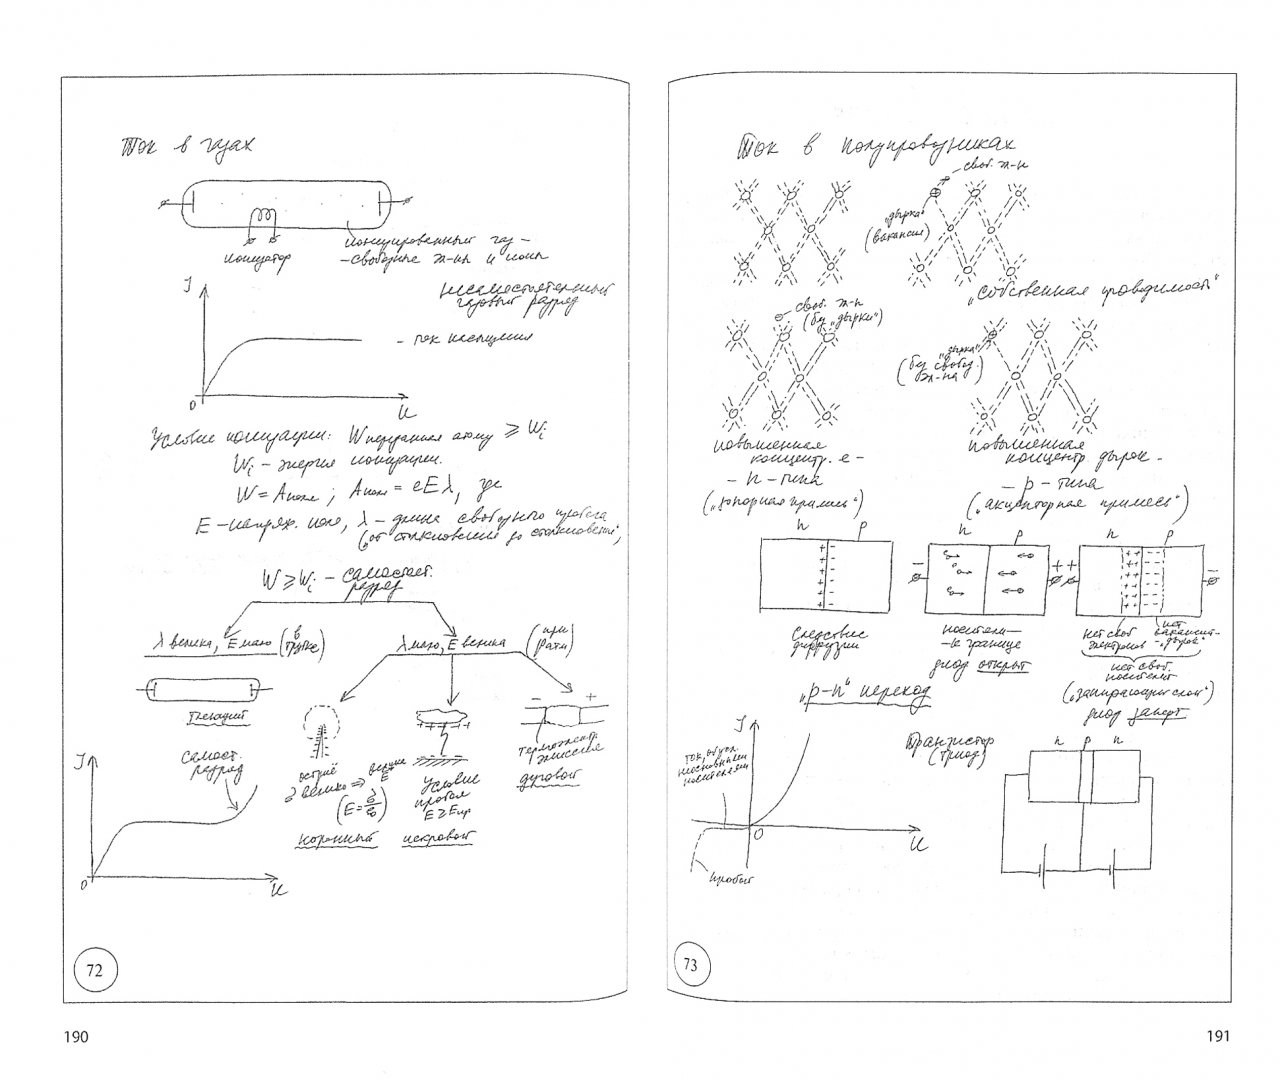 Ток в газах
ионизатор
ионизированный газ
- свободные эл-ны и ионы
I
несамостоятельный
газовый разряд
- ток насыщения
0
U
Условие ионизации: W переданная атому ≥ Wi
Wi - энергия ионизации.
W = Aполя ; Aполя = eEλ, где
E - напряж. поля, λ - длина свободного пробега
("от столкновения до столкновения",
W ≥ Wi - самостоят.
разряд
λ велика, E мало (в трубке)
λ мало, E велика (при Pатм)
тлеющий
- +
++++++
острие
δ велико ⇒ велика E
(E = δ/ε0)
коронный
Условие
пробоя
E ≥ Eпр
искровой
термоэлектр.
эмиссия
дуговой
I
самост.
разряд
0
U
72
190
Ток в полупроводниках
своб. эл-н
"дырка"
(вакансия)
"собственная проводимость"
своб. эл-н
(без "дырки")
"дырка"
(без свобод.
эл-на)
повышенная
концентр. e -
- n - типа
("донорная примесь")
повышенная
концентр. дырок -
- p - типа
("акцепторная примесь")
n p
n p
n p
- +
+ -
Следствие
диффузии
носители -
- к границе
диод открыт
нет своб
электронов
нет
вакансий-
- "дырок"
нет своб.
носителей
("запирающий слой")
диод заперт
"p-n" переход
I
ток, обусл.
неосновными
носителями
0
U
пробой
Транзистор
(триод)
n p n
73
191